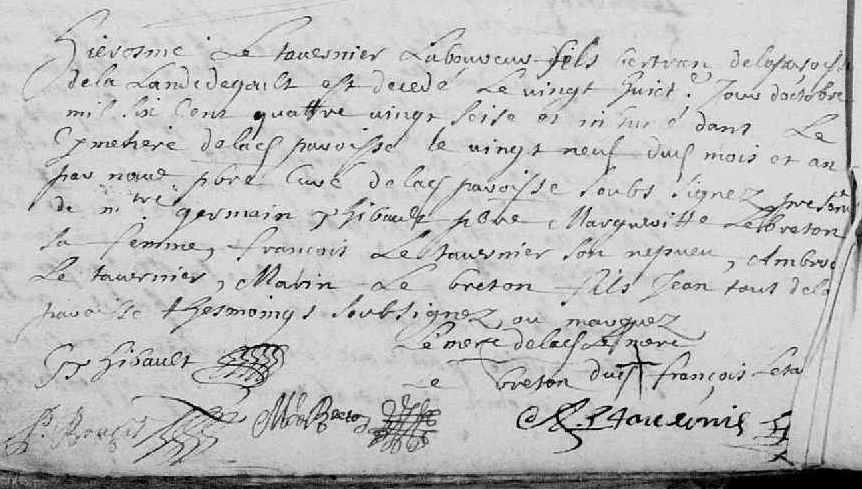 Hierosme Le tavernier Laboureur fils bertran de la paroisse
de la Landedegoult est decedé Le vingt huict.e Jour doctobre
mil six Cent quattre vingt seise et inhumé dans Le
Cymetiere de lad paroisse le vingt neuf dud mois et an
par nous pbre Curé de lad paroisse soubs signez presence
de m.tre germain Thibault pbre Margueritte Le breton
sa femme, françois Le tavernier son nepveu, Ambroise
Le tavernier, Marin Le breton fils Jean tous de la
paroisse thesmoings soubsignez ou marquez
G Thibault
Le merc de lad Le merc
Le breton dud françois Leta
M Le Breton
A. Letavernier